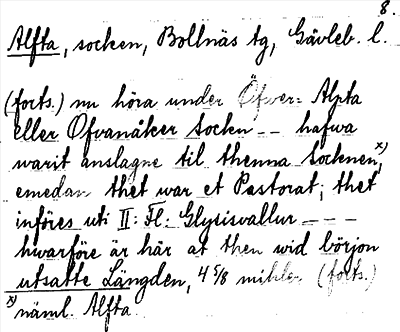 8.
Alfta, socken, Bollnäs tg, Gävleb. l.
(forts.) nu höra under Öfwer= Alpta
eller Ofvanåker Socken -- hafwa
warit anslagne til thenna Socknen, x)
emedan thet war et Pastorat; thet
införes uti II: Fl. Glysisvallur ---
hwarföre är här at then wid början
utsatte Längden, 4 5/8 mihler (forts.)
x) näml. Alfta